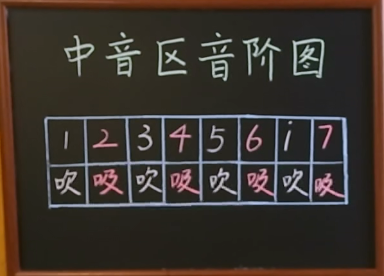 中音区音阶图
1 2 3 4 5 6 i 7
吹 吸 吹 吸 吹 吸 吹 吸